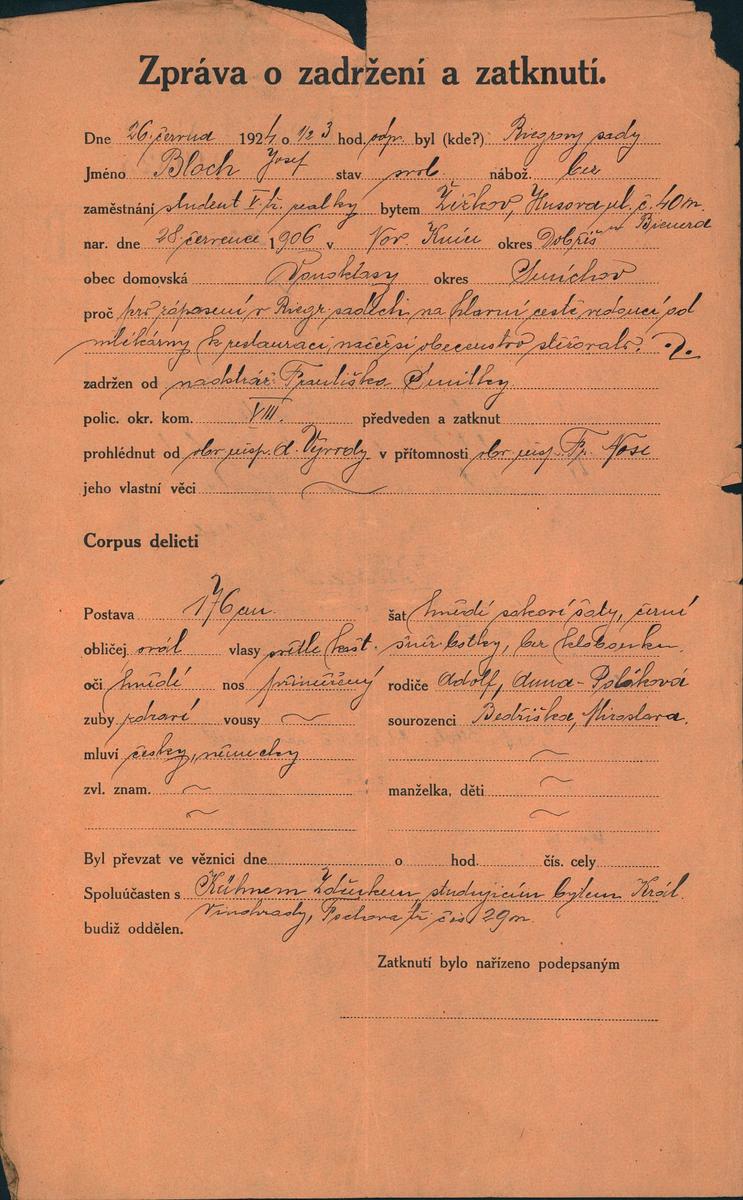 Zpráva o zadržení a zatknutí.
Dne 26. června 1924 o 1/2 3 hod. odp. byl (kde?) Riegrovy sady
Jméno Bloch Josef stav svob. nábož. bez
zaměstnání student V. tř. reálky bytem Žižkov, Husova ul. č. 40 m.
nar. dne 28 července 1906 v Nov. Knínu okres Dobříš
obec domovská Vonoklasy okres Smíchov
proč pro zápasení v Riegr. sadech, na hlavní cestě vedoucí od
mlékárny k restauraci, načež si obecenstvo stěžovalo.
zadržen od nadstráž. Františka Smitky
polic. okr. kom. VIII. předveden a zatknut
prohlédnut od obv. insp. v přítomnosti obv. insp. Fr. Nose
jeho vlastní věci ~
Corpus delicti
Postava 176 cm.
obličej ovál vlasy světle kašt.
oči hnědé nos přiměřený
zuby zdravé vousy ~
mluví česky, německy
zvl. znam. ~
~
šat hnědé sakové šaty, černé
šněr. botky, bez klobouku.
rodiče Adolf, Anna - Poláková
sourozenci Bedřiška, Miroslava.
~
manželka, děti ~
~
Byl převzat ve věznici dne o hod. čís. cely
Spoluúčasten s Kühnem Zdeňkem, studujícím bytem Král.
Vinohrady, Fochova tř. čís. 29 m.
budiž oddělen.
Zatknutí bylo nařízeno podepsaným